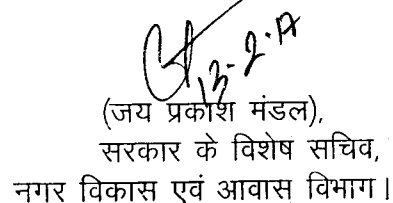 13.2.17
(जय प्रकाश मंडल),
सरकार के विशेष सचिव,
नगर विकास एवं आवास विभाग।